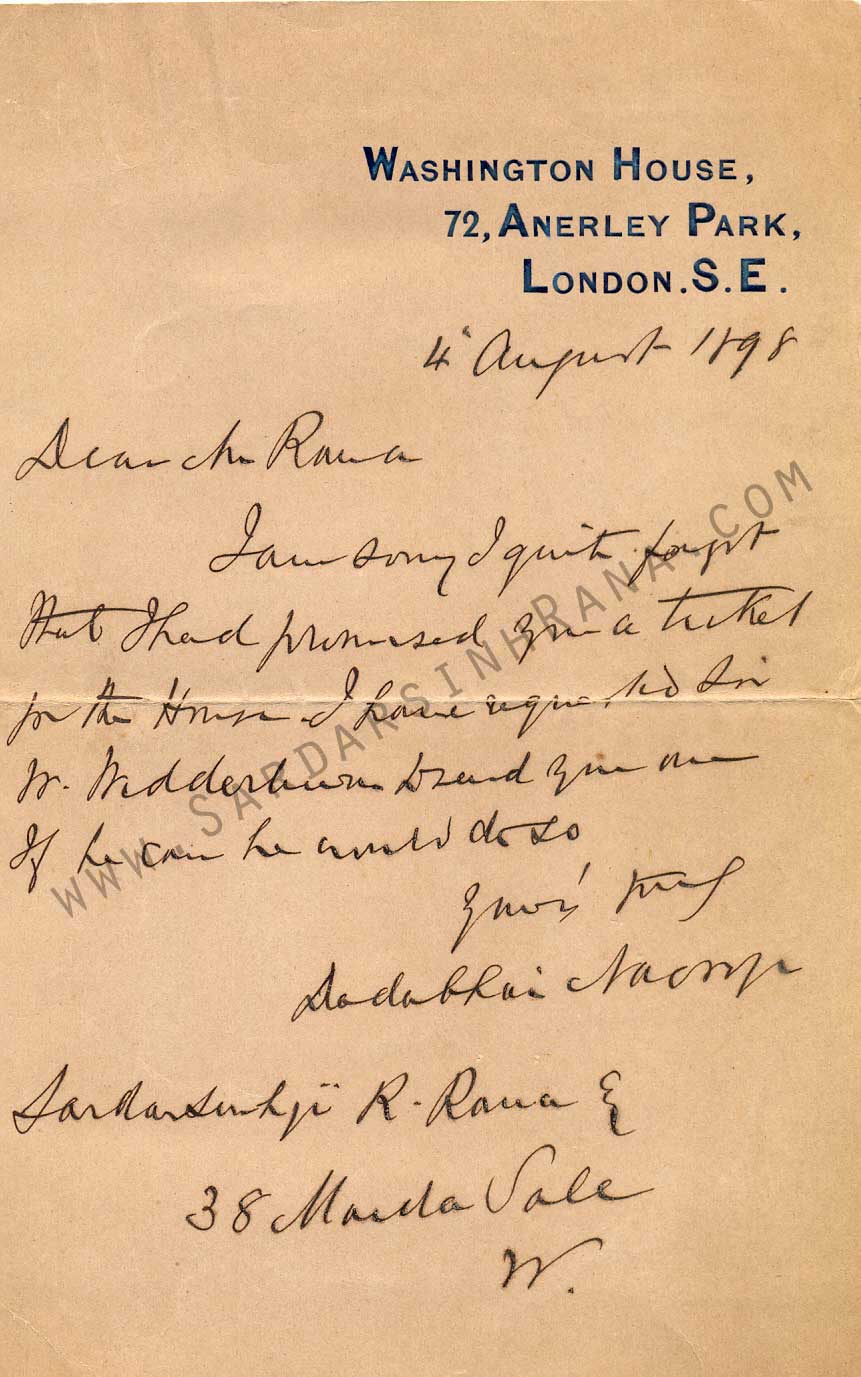 WASHINGTON HOUSE,
72, ANERLEY PARK,
LONDON. S.E.
4 August 1898
Dear Mr Rana
I am sorry I quite forgot
that I had promised you a ticket
for the House. I have requested Sir
W. Wedderburn to send you one
If he can he would do so
Yours truly
Dadabhai Naoroji
Sardarsinhji R. Rana Eq
38 Maida Vale
W.
WWW.SARDARSINHRANA.COM